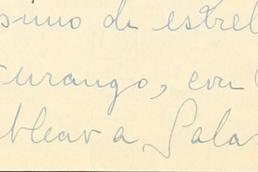 simo de estrel
urango, con
blear a Sala